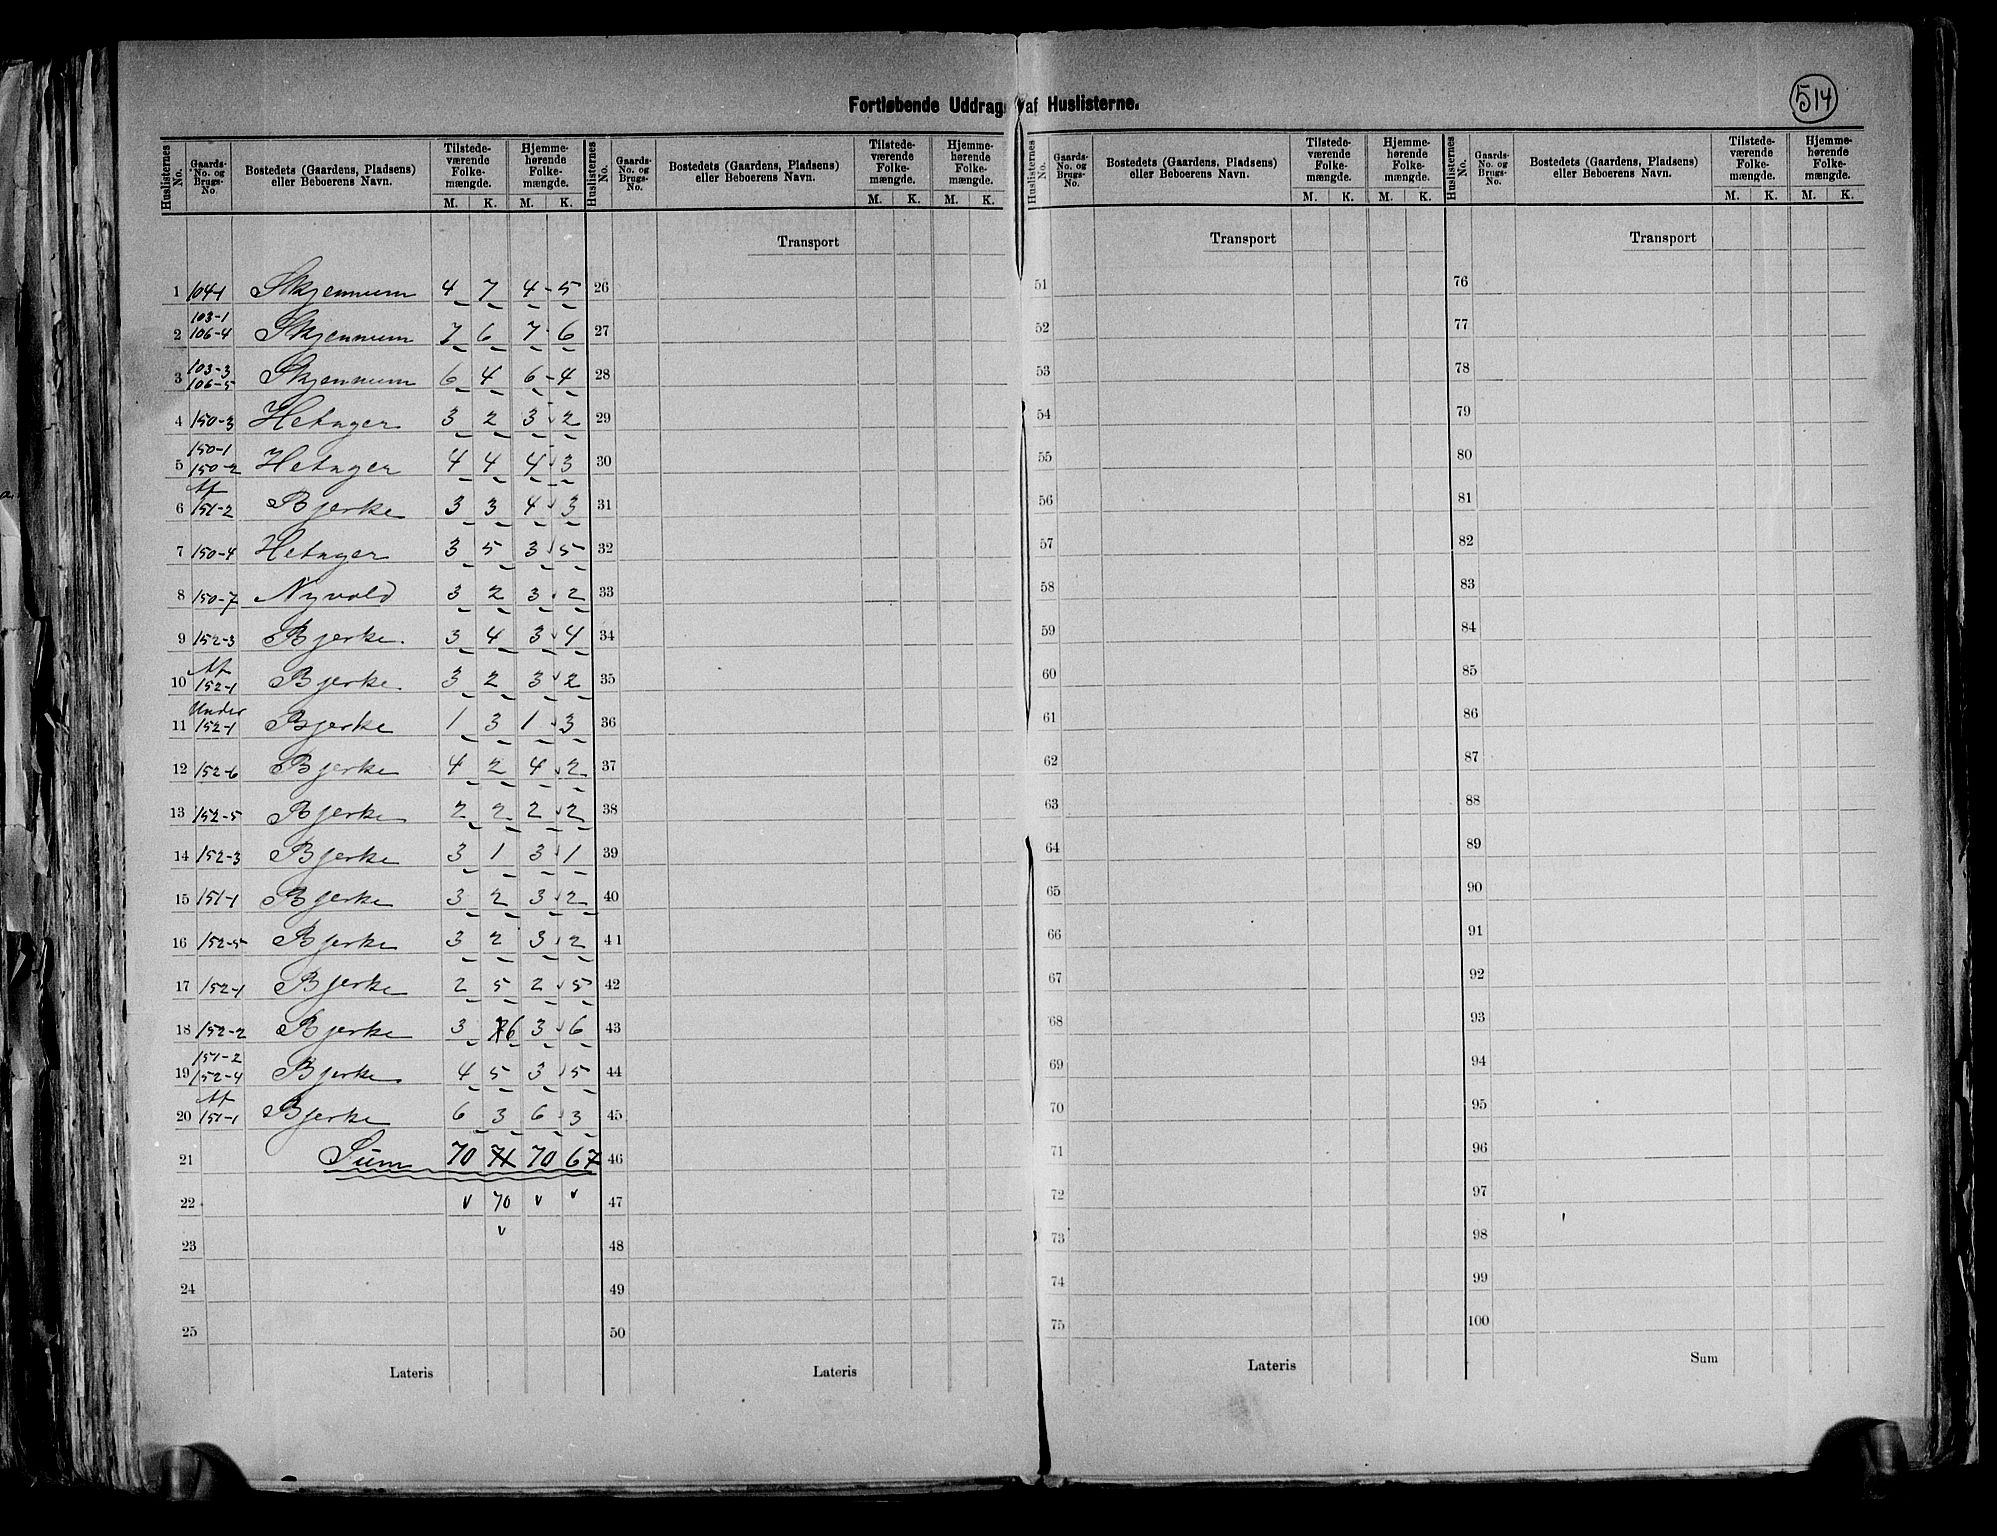 514
Fortløbende Uddrag af Huslisterne.
Huslisternes No. | Gaards-No. og Brugs-No. | Bostedets (Gaardens, Pladsens) eller Beboerens Navn. | Tilstedeværende Folkemængde. M. K. | Hjemmehørende Folkemængde. M. K.
Huslisternes No. | Gaards-No. og Brugs-No. | Bostedets (Gaardens, Pladsens) eller Beboerens Navn. | Tilstedeværende Folkemængde. M. K. | Hjemmehørende Folkemængde. M. K.
Huslisternes No. | Gaards-No. og Brugs-No. | Bostedets (Gaardens, Pladsens) eller Beboerens Navn. | Tilstedeværende Folkemængde. M. K. | Hjemmehørende Folkemængde. M. K.
Huslisternes No. | Gaards-No. og Brugs-No. | Bostedets (Gaardens, Pladsens) eller Beboerens Navn. | Tilstedeværende Folkemængde. M. K. | Hjemmehørende Folkemængde. M. K.
Transport Transport Transport
1 104-1 Skjennum 4 7 4 - 5 26 51 76
103-1
2 106-4 Skjennum 7 6 7 - 6 27 52 77
103-3
3 106-5 Skjennum 6 4 6 - 4 28 53 78
4 150-3 Hetager 3 2 3 2 29 54 79
150-1
5 150-2 Hetager 4 4 4 3 30 55 80
Af
6 151-2 Bjerke 3 3 4 3 31 56 81
7 150-4 Hetager 3 5 3 5 32 57 82
8 150-7 Nyvold 3 2 3 2 33 58 83
9 152-3 Bjerke. 3 4 3 4 34 59 84
Af
10 152-1 Bjerke. 3 2 3 2 35 60 85
Under
11 152-1 Bjerke 1 3 1 3 36 61 86
12 152-6 Bjerke 4 2 4 2 37 62 87
13 152-5 Bjerke 2 2 2 2 38 63 88
14 152-3 Bjerke 3 1 3 1 39 64 89
15 151-1 Bjerke 3 2 3 2 40 65 90
16 152-5 Bjerke 3 2 3 2 41 66 91
17 152-1 Bjerke 2 5 2 5 42 67 92
18 152-2 Bjerke 3 6 3 6 43 68 93
151-2
19 152-4 Bjerke 4 5 3 5 44 69 94
Af
20 151-1 Bjerke 6 3 6 3 45 70 95
21 Sum 70 71 70 67 46 71 96
22 v 70 v v 47 72 97
v
23 48 73 98
24 49 74 99
25 50 75 100
Lateris Lateris Lateris Sum